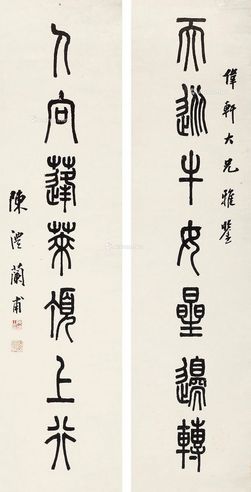 偉軒大兄雅鑒
天從牛女星邊轉
人向蓬萊頂上行
陳澧蘭甫